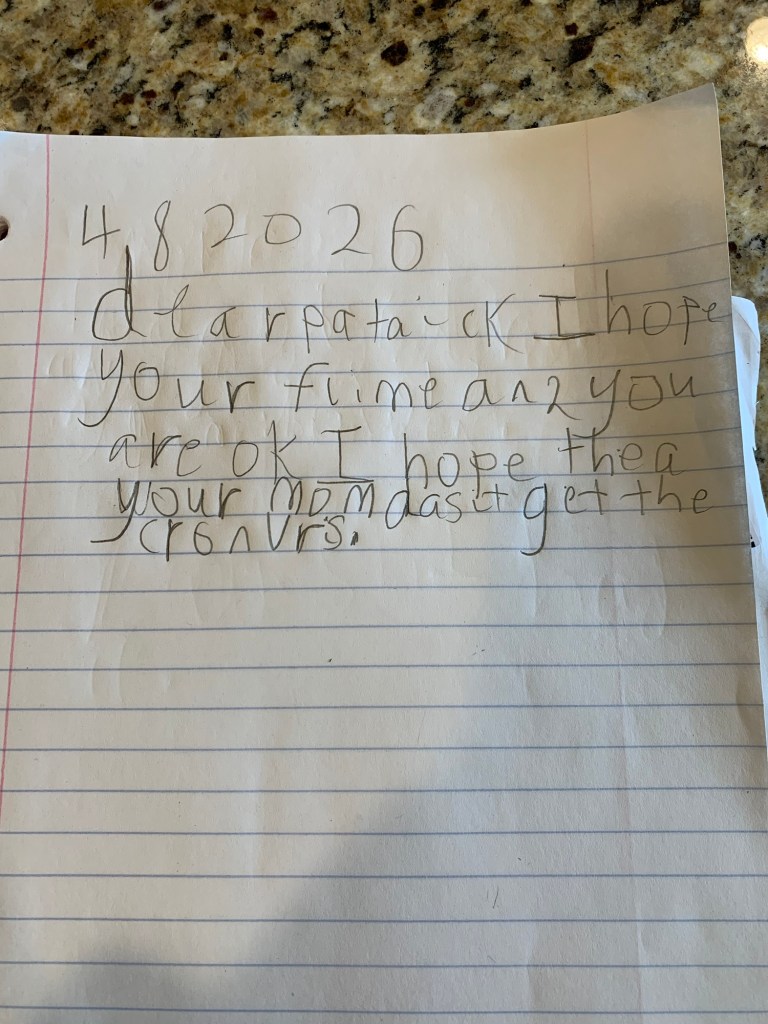 4 8 2026
dear pataick I hope
your fiime an2 you
are ok I hope thea
your mom dasit get the
cronvrs.